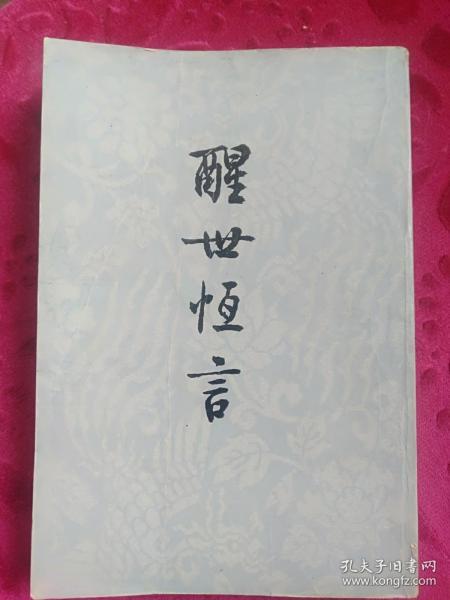 醒世恆言
孔夫子旧书网
www.kongfz.com